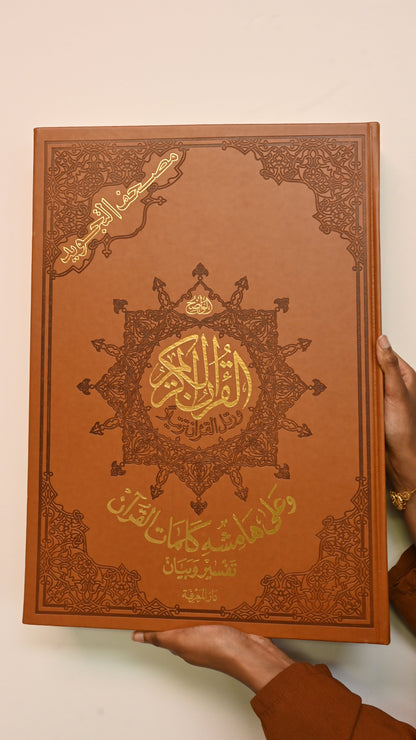 مصحف التجويد
الواضح
القرآن الكريم
ورتل القرآن ترتيلا
وعلى هامشه كلمات القرآن
تفسير وبيان
دار المعرفة